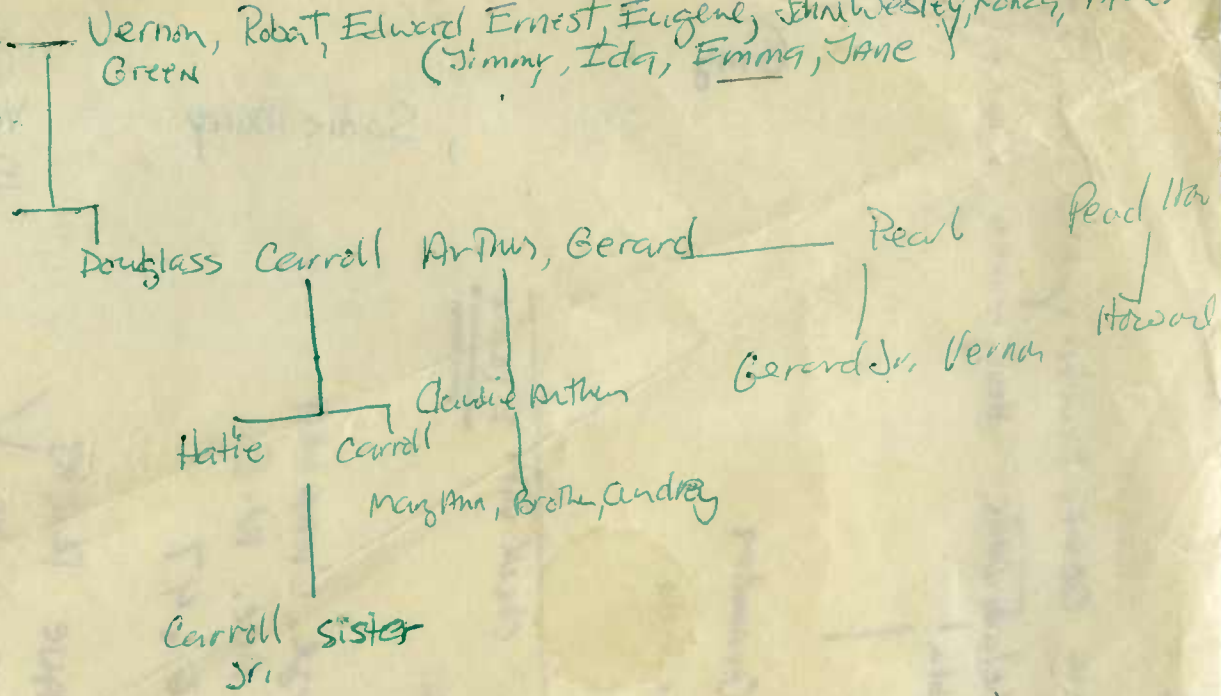 Vernon, Robert, Edward, Ernest, Eugene, John Wesley,
Green (Jimmy, Ida, Emma, JANE
Douglass Carroll Arthur, Gerard Pearl Pearl
Howard
Gerard Jr. Vernon
Claudie Arthur
Hatie Carroll
Mary Ann, Brother, Audrey
Carroll sister
Jr.